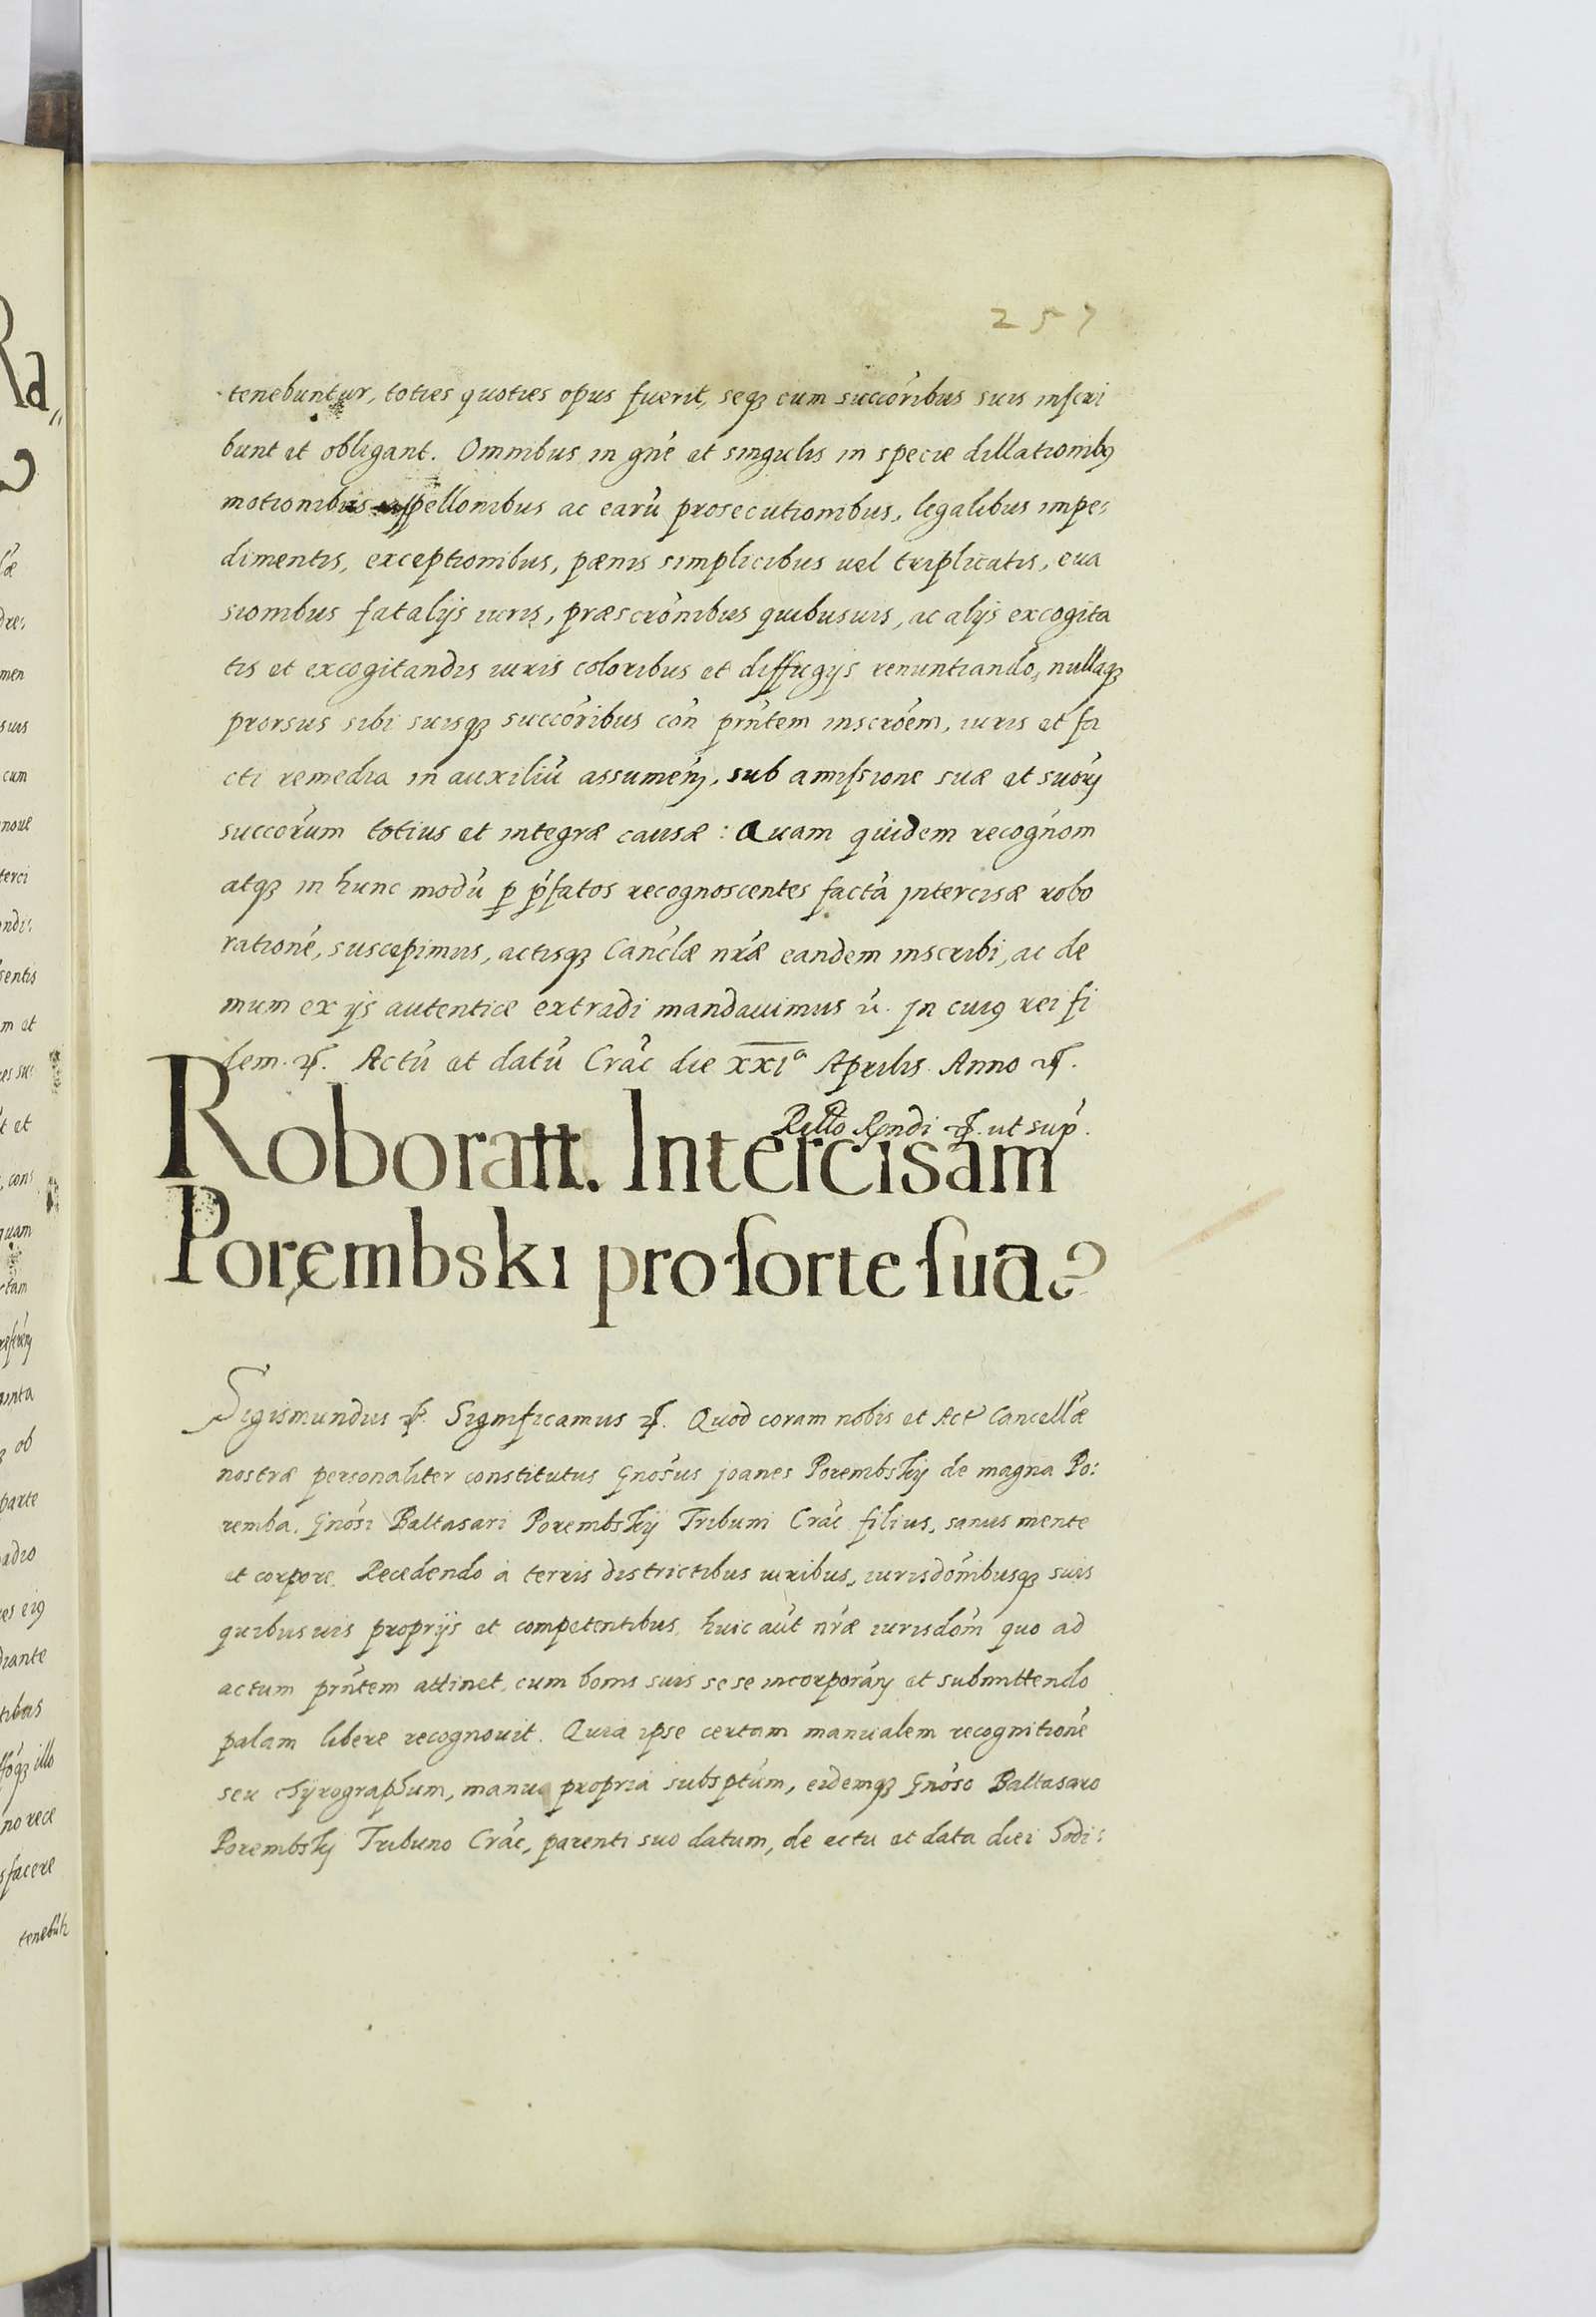 257
tenebuntur, toties quoties opus fuerit, seqꝫ cum succõribus suis inscri
bunt et obligant. Omnibus in gñe et singulis in specie dillationibꝰ
motionibus appellonibus ac earũ prosecutionibus, legalibus impe:
dimentis, exceptionibus, pænis simplicibus vel triplicatis, eua
sionibus fatalijs iuris, præscrõnibus quibusuis, ac alijs excogita
tis et excogitandis iuris coloribus et diffugijs renuntiando, nullaqꝫ
prorsus sibi suisqꝫ succõribus cõn prñtem inscrõem, iuris et fa
cti remedia in auxiliũ assumeñ, sub amissione suæ et suõꝝ
succorum totius et integræ causæ: Quam quidem recognom
atqꝫ in hunc modũ ꝑ p̃fatos recognoscentes factã intercisæ robo
rationẽ, suscepimus, actisqꝫ Canc̃læ nr̃æ eandem inscribi, ac de
mum ex ijs autentice extradi mandauimus ũ. In cuiꝰ rei fi
dem ꝛc. Actũ et datũ Crãc die XXIª Aprilis Anno ꝛc.
Rtlto Rñdi ꝛc. ut sup̃.
Roboratt. Intercisam
Porembski pro sorte sua
Sigismundus ꝛc. Significamus ꝛc. Quod coram nobis et Act̃ Cancellæ
nostræ personaliter constitutus Gnosus Joanes Porembskij de magna Po:
remba, Gnosi Baltasari Porembskij Tribuni Crãc filius, sanus mente
et corpore. Recedendo a terris districtibus iuribus, iurisdõnibusqꝫ suis
quibusuis proprijs et competentibus, huic aũt nr̃æ iurisdõm quo ad
actum prñtem attinet, cum bonis suis sese incorporañ et submittendo
palam libere recognouit. Quia ipse certam manualem recognitionẽ
seu chyrographum, manu propria subsptũm, eidemqꝫ Gnõso Baltasaro
Porembskij Tribuno Crãc, parenti suo datum, de actu et data diei hodi: